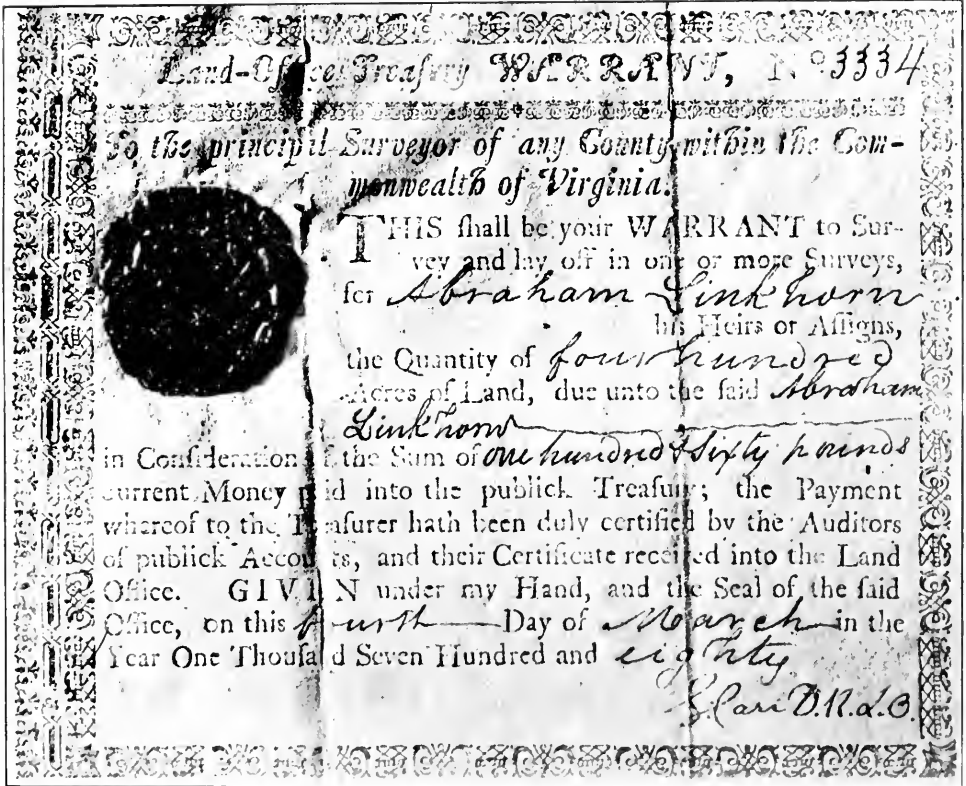 Land-Office Treasury WARRANT, No 3334
To the principal Surveyor of any County within the Com-
monwealth of Virginia.
THIS ſhall be your WARRANT to Sur-
vey and lay off in one or more Surveys,
for Abraham Linkhorn
his Heirs or Aſſigns,
the Quantity of four hundred
Acres of Land, due unto the ſaid Abraham
Linkhorn
in Conſideration of the Sum of one hundred & Sixty pounds
current Money paid into the publick Treaſury; the Payment
whereof to the Treaſurer hath been duly certified by the Auditors
of publick Accounts, and their Certificate received into the Land
Office. GIVEN under my Hand, and the Seal of the ſaid
Office, on this fourth Day of March in the
Year One Thouſand Seven Hundred and eighty
D.R.L.O.